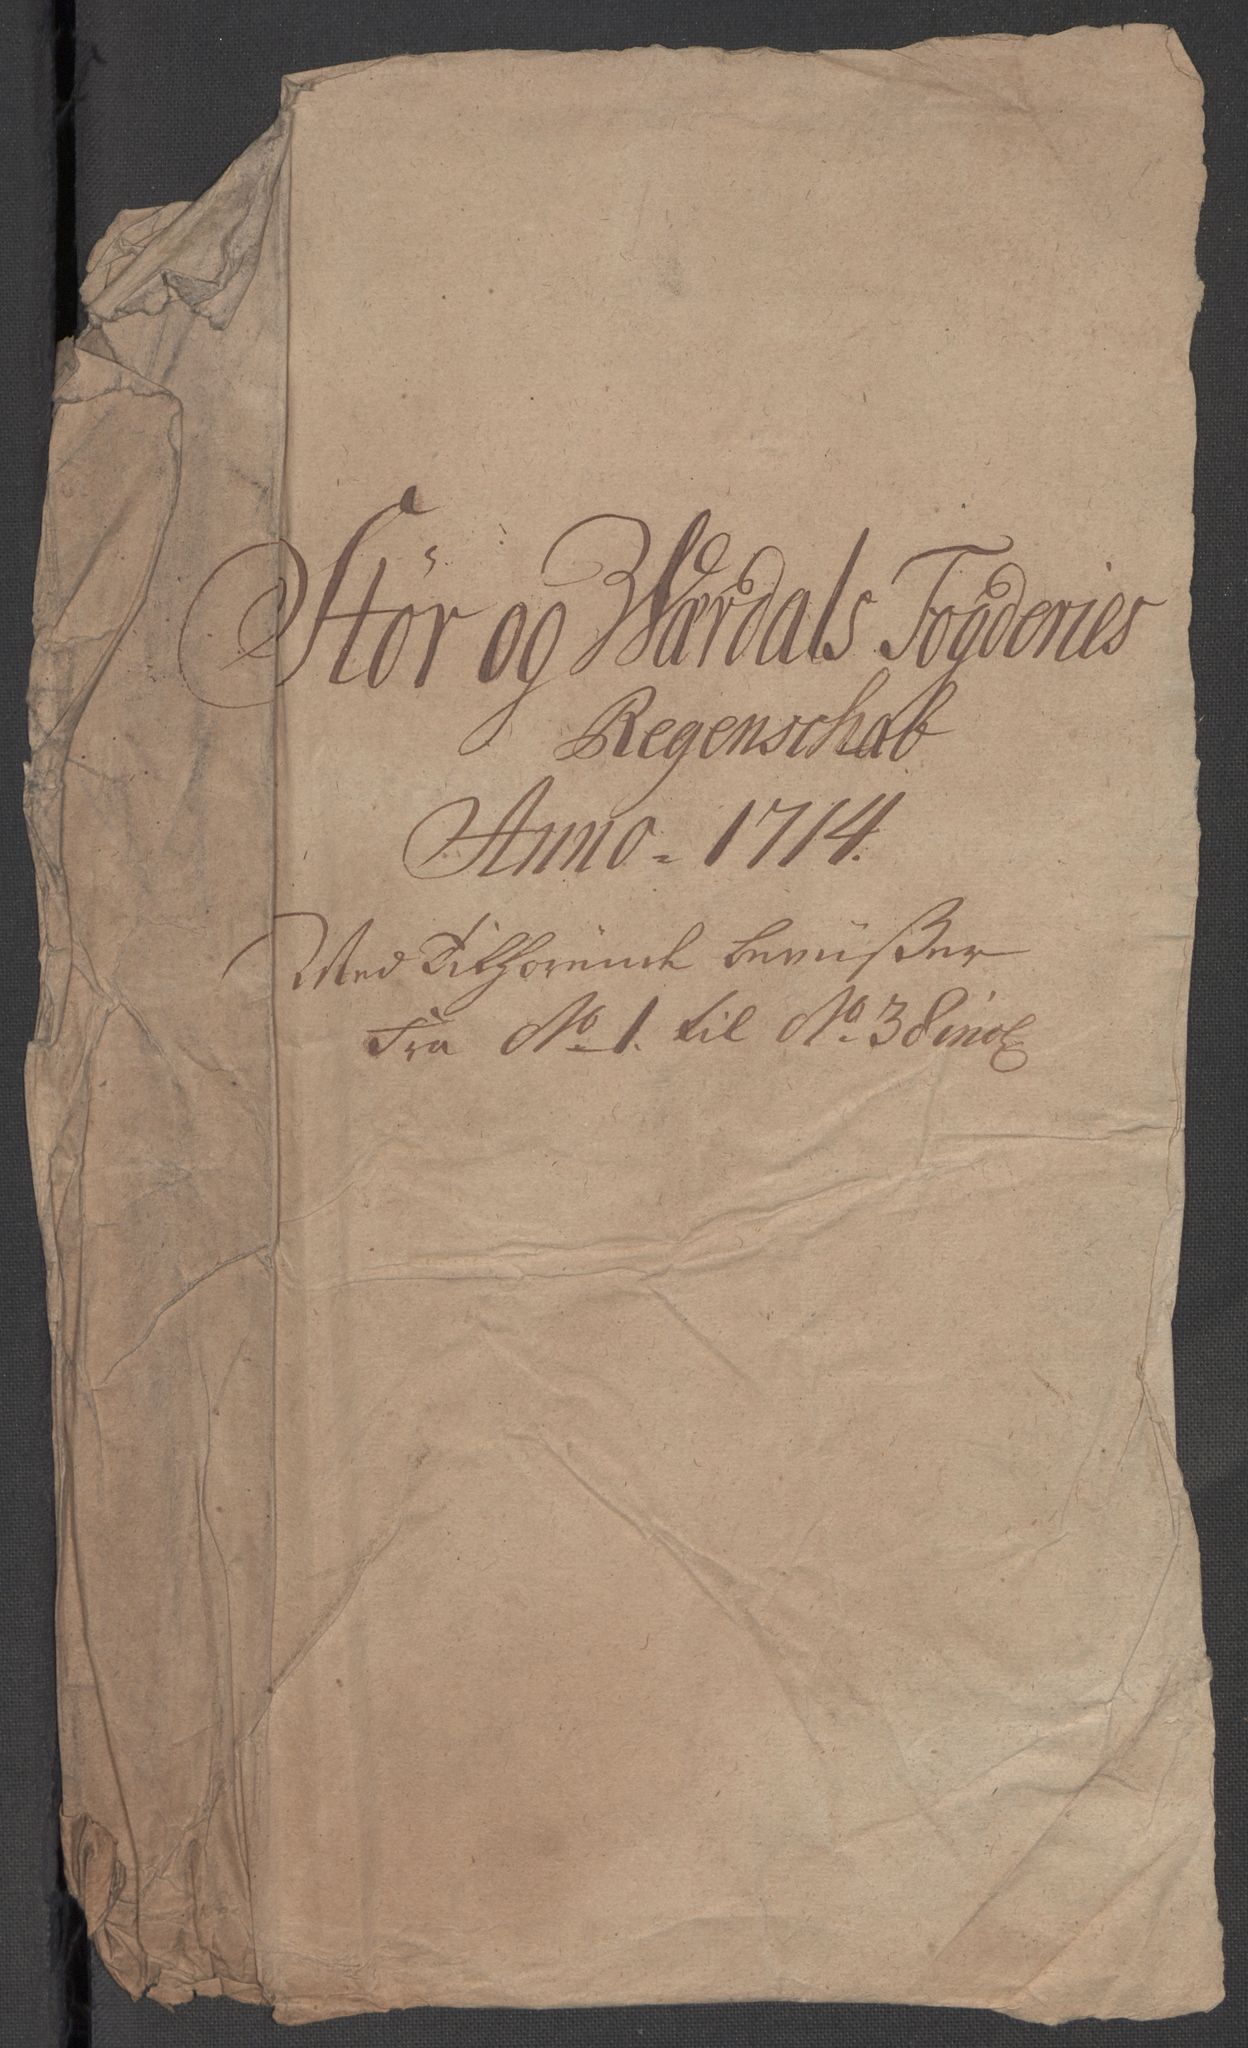 Stör og Wærdals Fogderies
Regenschab
Anno = 1714.
Med Tilhörende beviißer
Fra No. 1. til No. 38 incl